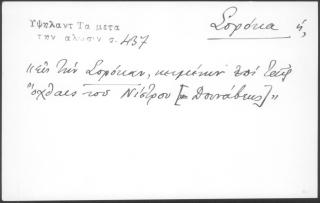 Υψηλαντ Τα μετα
την αλωσιν σ. 437
Σορόκα ἡ,
«εἰς τὴν Σορόκαν, κειμένην ἐπὶ ταῖς
ὄχθαις τοῦ Νίστρου [= Δουνάβεως]»